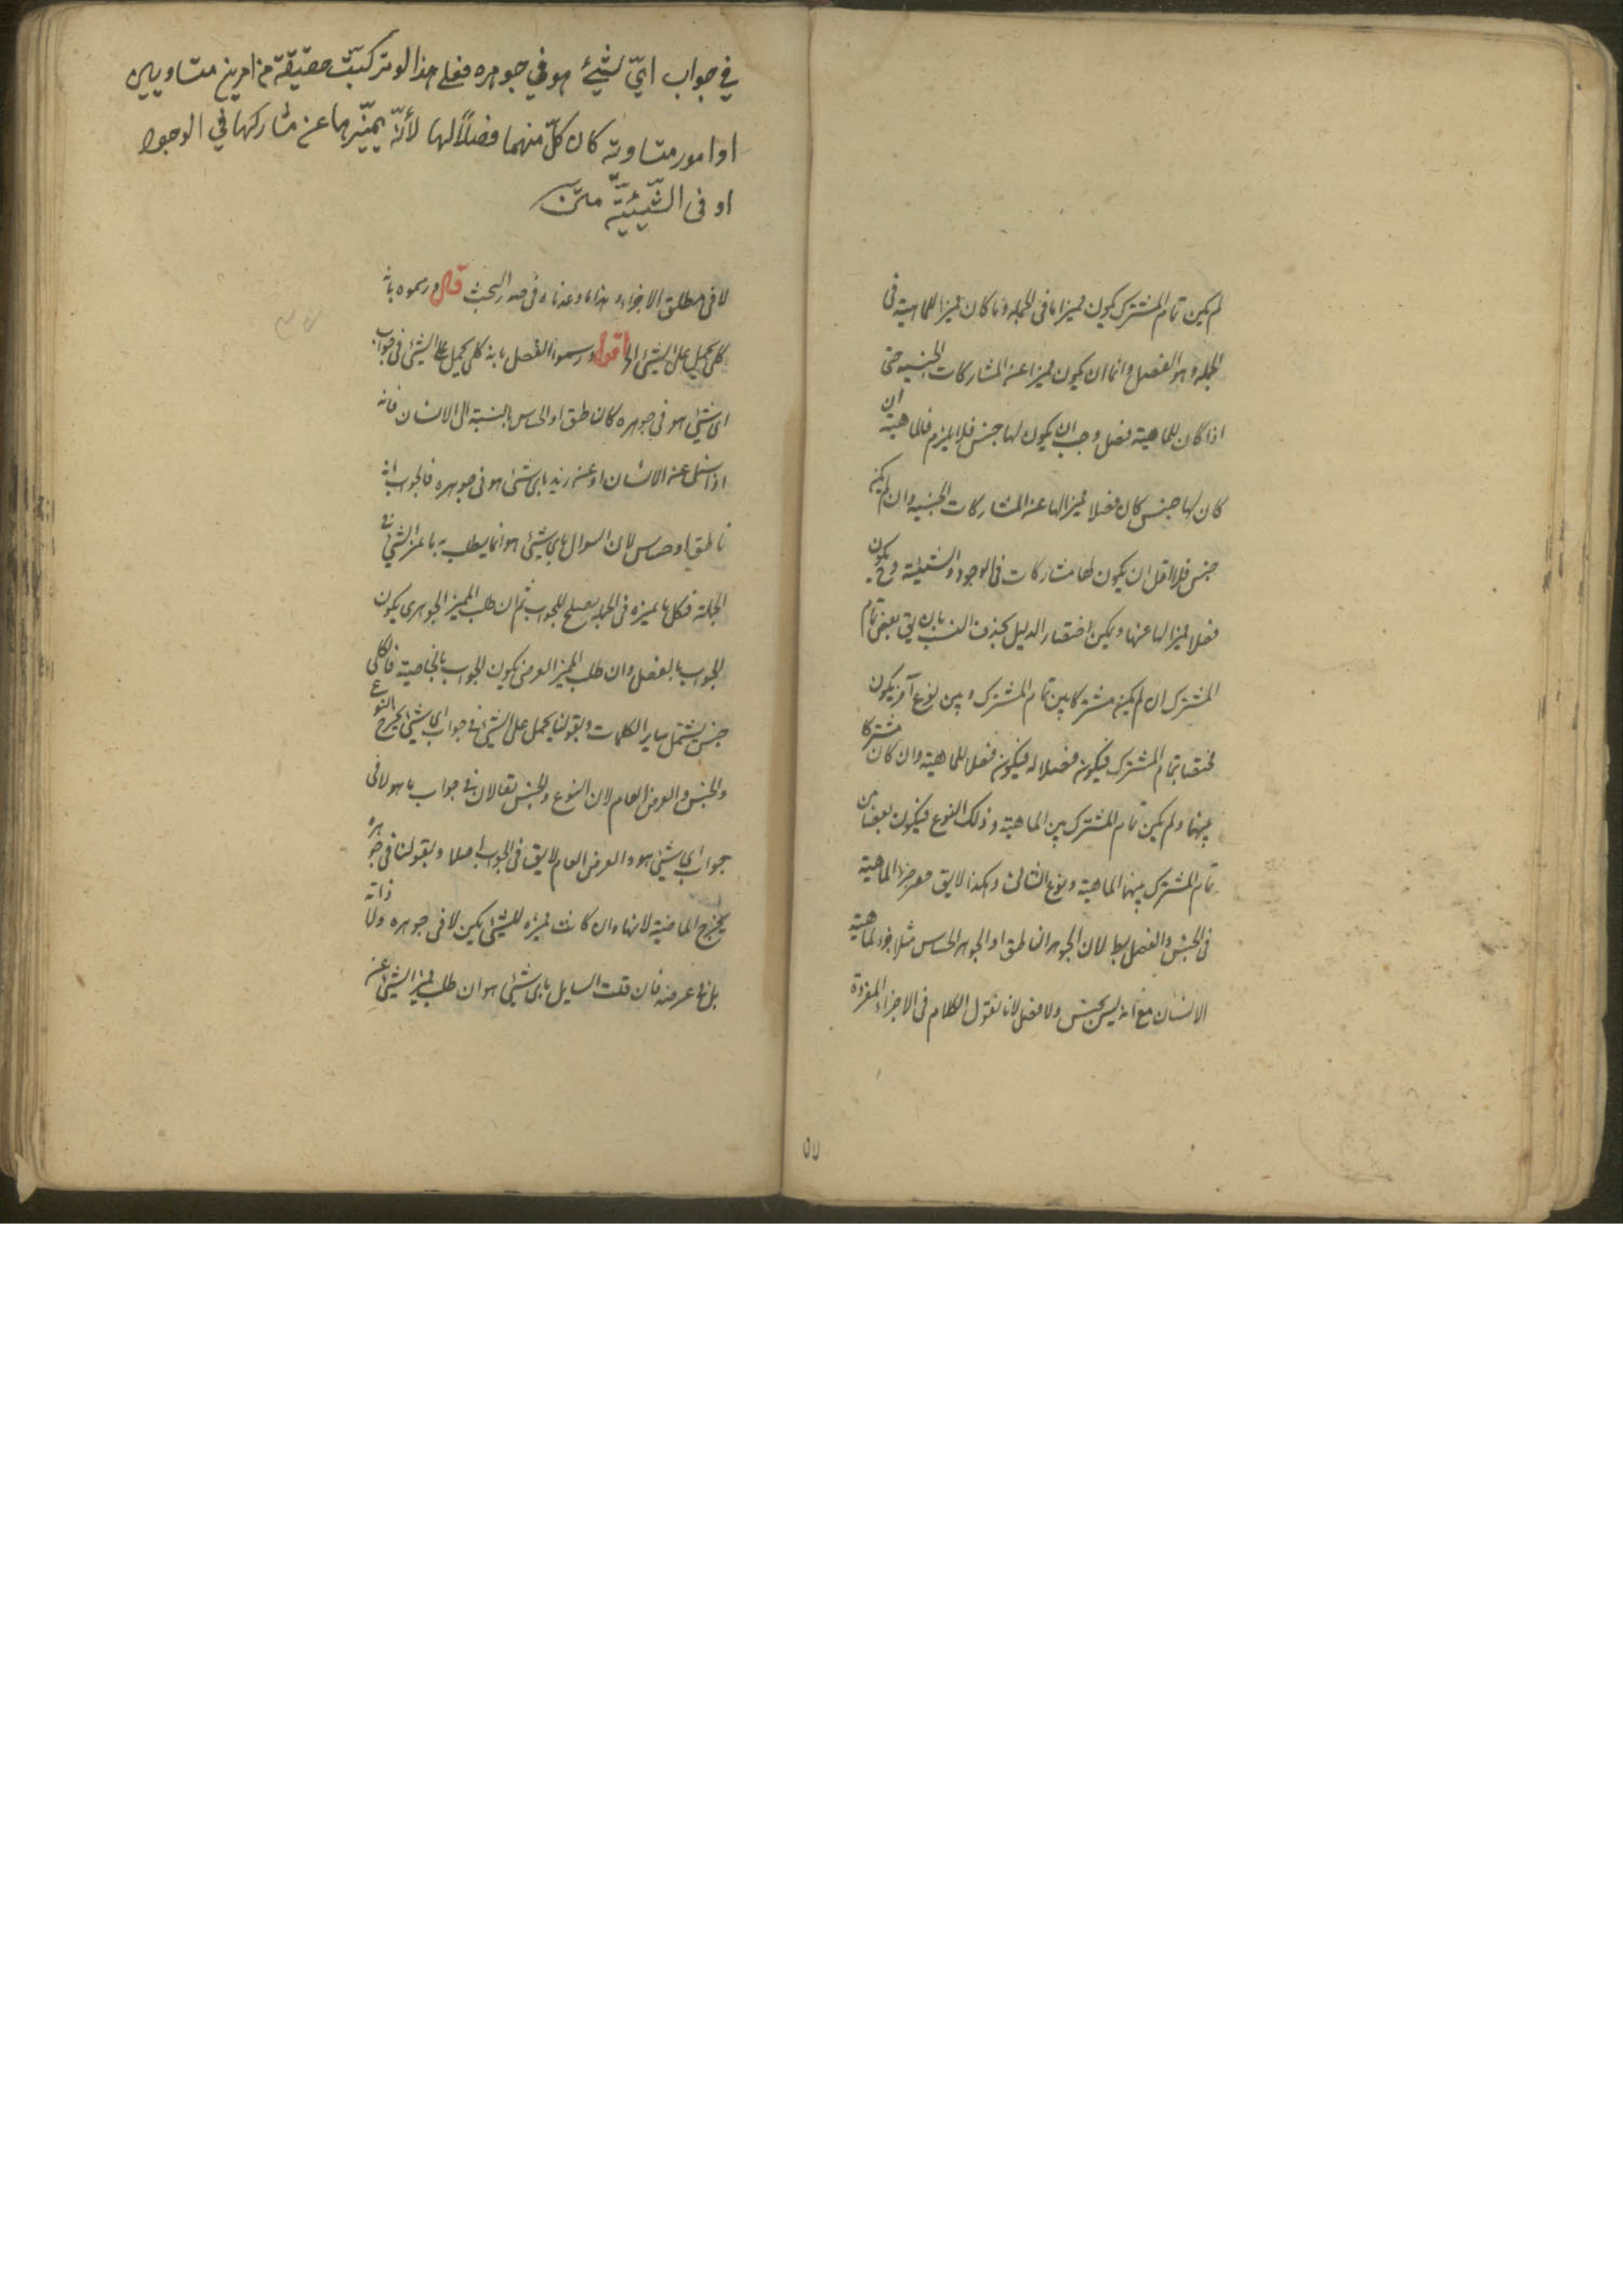 لم يكن تمام المشترك يكون مميزا ما فى الجمله وما كان مميزا للماهية فى
الجمله وهو الفصل واما ان يكون مميزا عن المشاركات الجنسيه حتى
اذا كان للماهية فصل وجب ان يكون لها جنس فلا يلزم فالماهية ان
كان لها جنس كان فصلا مميزا لها عن المشاركات الجنسيه وان لم يكن
جنس فلا اقل ان يكون لها مشاركات فى الوجود والشيئية وح يكون
فصلا مميزا لها عنها ويمكن اختصار الدليل بحذف النسب بان يق بعض تمام
المشترك ان لم يكن مشتركا بين تمام المشترك وبين نوع آخر يكون
مختصا بتمام المشترك فيكون فصلا له فيكون فصلا للماهية وان كان مشتركا
بينهما ولم يكن تمام المشترك بين الماهية وذلك النوع فيكون بعضا من
تمام المشترك بينها الماهية ونوع الثالث وهكذا لا يق حصر جزء الماهية
فى الجنس والفصل بط لان الجوهر الناطق او الجوهر الحساس مثلا جزء لماهية
الانسان مع انه ليس بجنس ولا فصل لانا نقول الكلام فى الاجزاء المفردة
٥٧
في جواب ايّ شيئ هو في جوهره فعلى هذا لو تركبّت حقيقة من امرين متساويين
او امور متساوية كان كلّ منهما فصلاً لها لأنّه يميّزها عن مشاركها في الوجود
او فى الشّيئيّة متن
لا فى مطلق الاجزاء وهذا ما وعدناه فى صدر البحث قال ورسموه بانه
كلى يحمل على الشيئ الخ اقول ورسموا الفصل بانه كلى يحمل على الشيئ فى جواب
اى شيئ هو فى جوهره كالناطق او الحساس بالنسبة الى الانسان فانه
اذا سئل عن الانسان او عن زيد باى شيئ هو فى جوهره فالجواب انه
ناطق او حساس لان السوال باى شيئ هو انما يطلب به ما يميز الشيئ فى
الجملة فكل ما يميزه فى الجمله يصلح للجواب ثم ان طلب المميز الجوهرى يكون
الجواب بالفصل وان طلب المميز العرضى يكون الجواب بالخاصية فالكلى
جنس يشتمل ساير الكليات وبقولنا يحمل على الشيئ فى جواب اى شيئ يخرج النوع
والجنس والعرض العام لان النوع والجنس يقالان فى جواب ما هو لا فى
جواب اى شيئ هو والعرض العام لا يق فى الجواب اصلا وبقولنا فى جوهره
يخرج الخاصية لانها وان كانت مميزه للشيئ لكن لا فى جوهره ولا ذاته
بل فى عرضه فان قلت السايل باى شيئ هو ان طلب مميز الشيئ عن